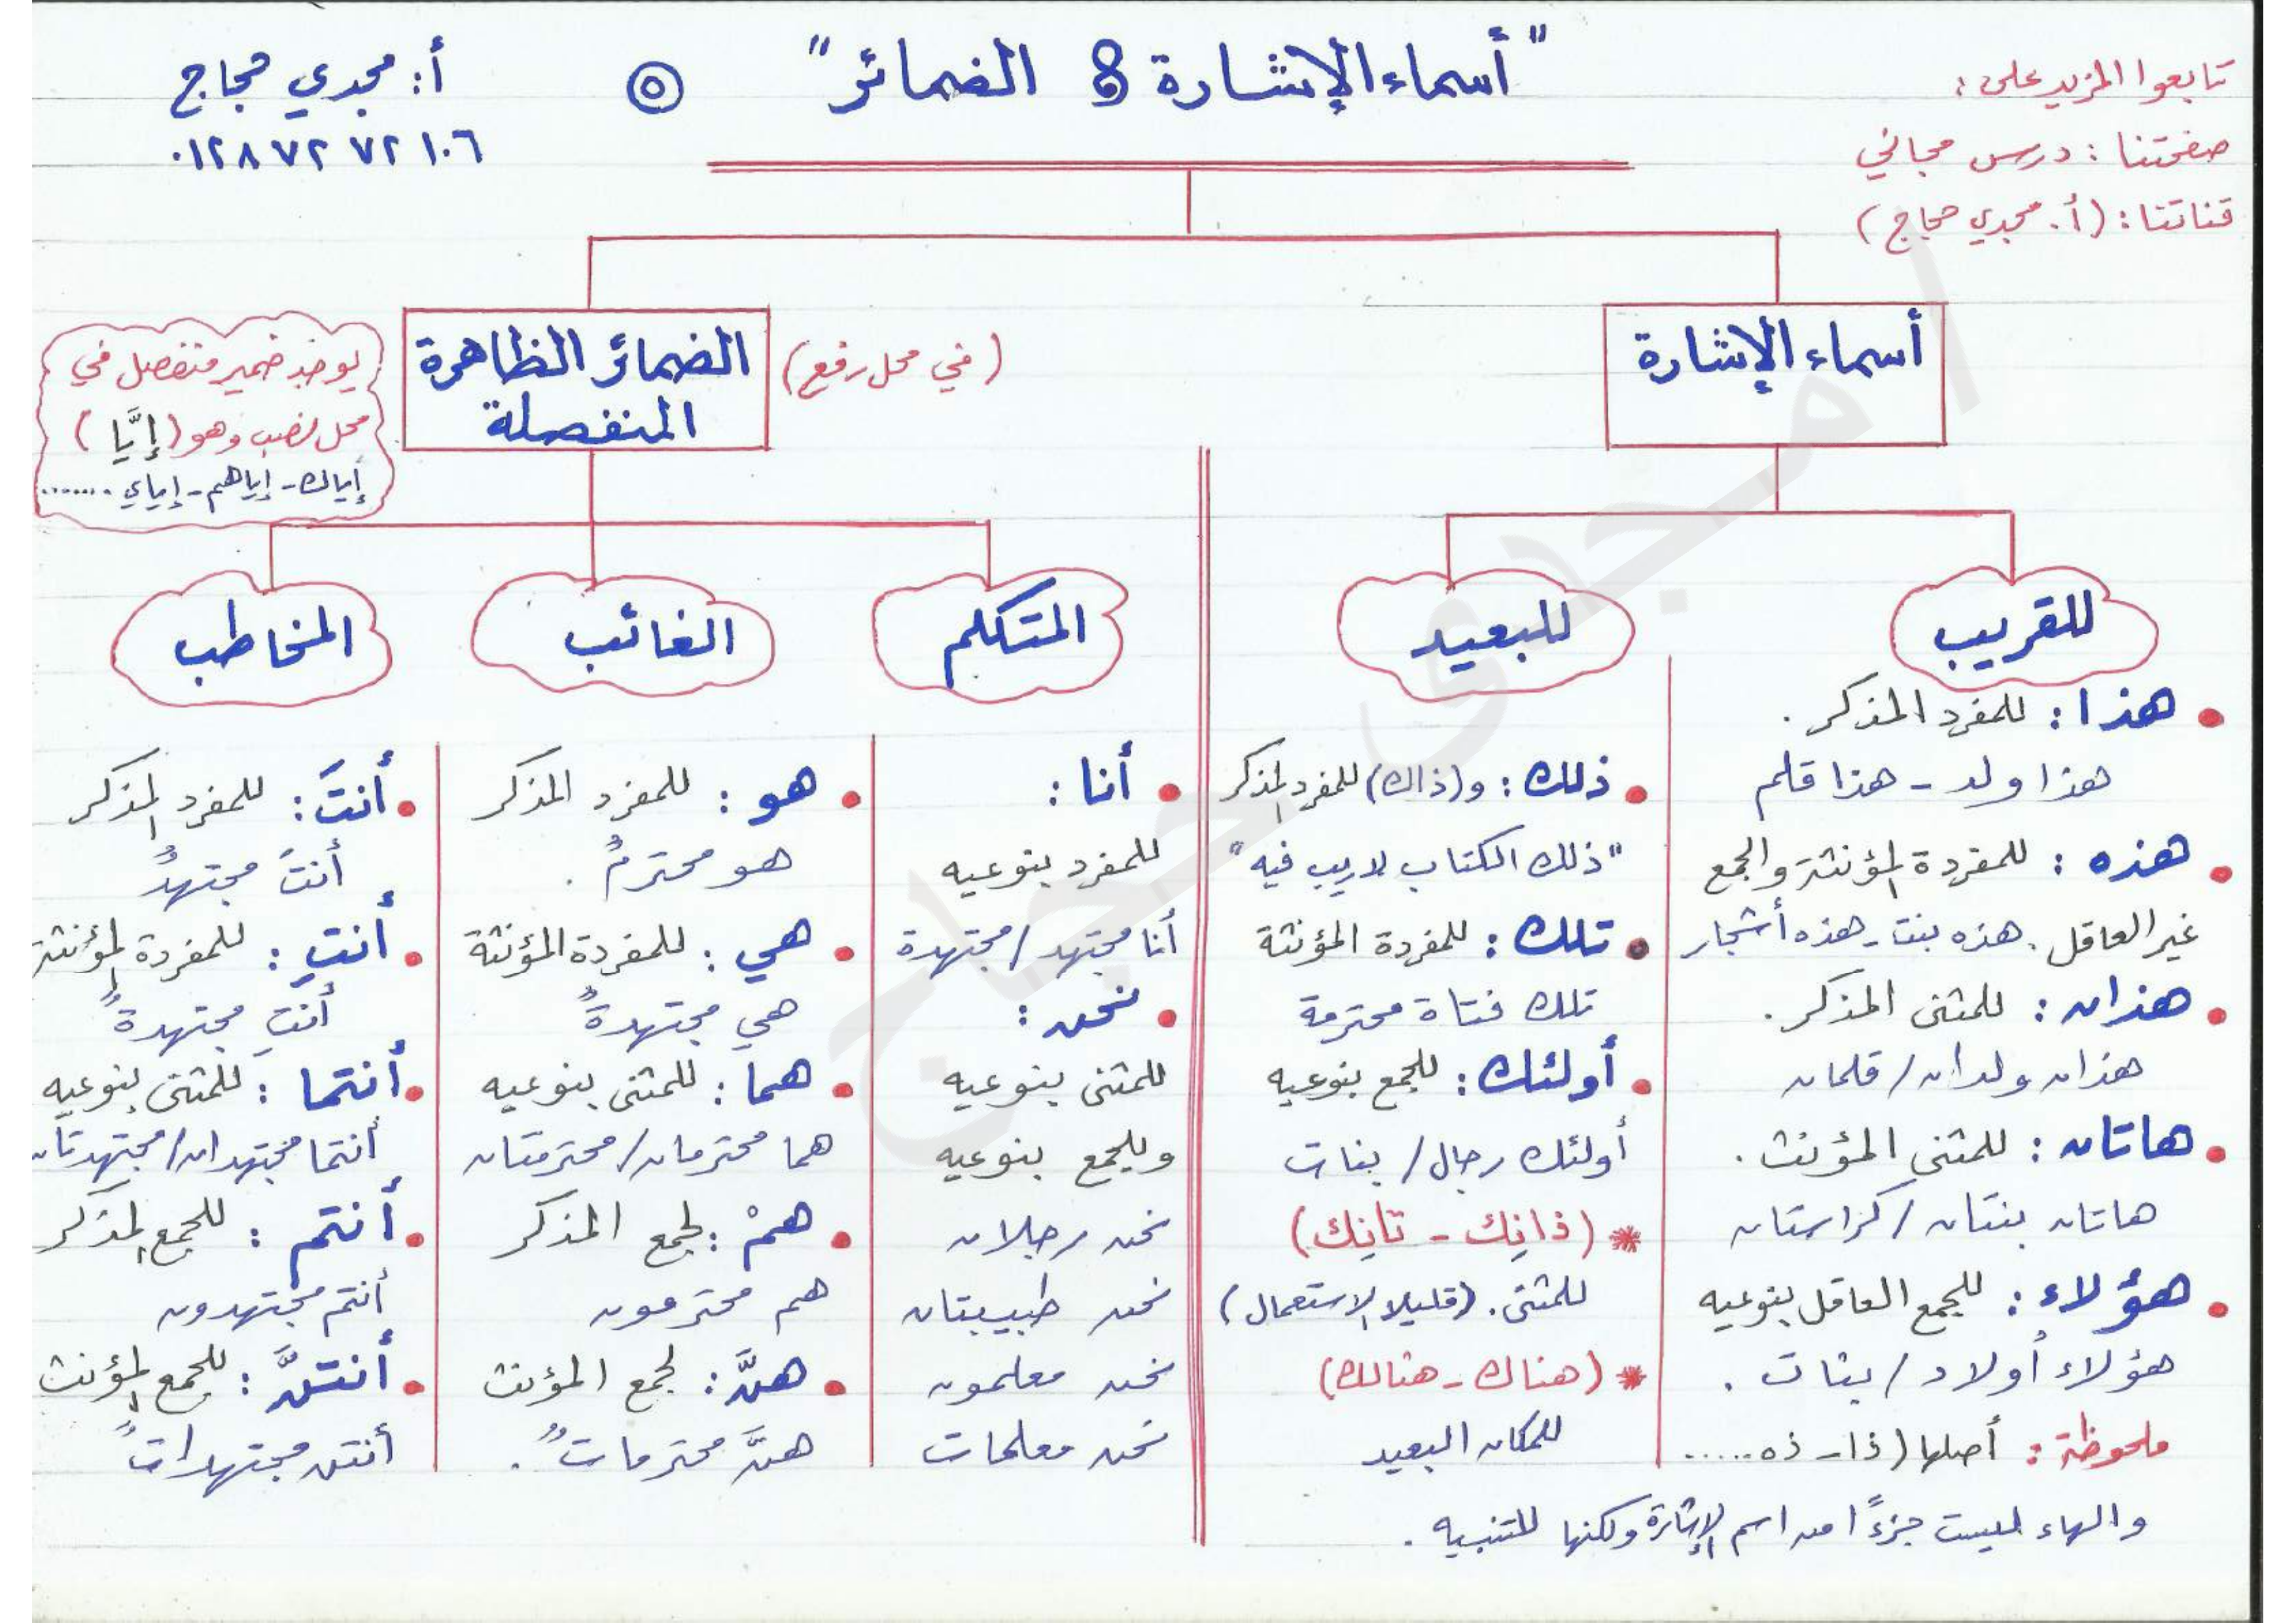 تابعوا المزيد على:
صفحتنا: درس مجاني
قناتنا: (أ. مجدي حجاج)
"أسماء الإشارة & الضمائر"
٥
أ: مجدي حجاج
٠١٢٨٧٢٧٢١٠٦
أسماء الإشارة
للقريب
• هذا: للمفرد المذكر.
هذا ولد - هذا قلم
• هذه: للمفردة المؤنثة والجمع
غير العاقل. هذه بنت - هذه أشجار
• هذان: للمثنى المذكر.
هذان ولدان / قلمان
• هاتان: للمثنى المؤنث.
هاتان بنتان / كراستان
• هؤلاء: للجمع العاقل بنوعيه
هؤلاء أولاد / بنات.
ملحوظة: أصلها (ذا - ذه .....
والهاء ليست جزءًا من اسم الإشارة ولكنها للتنبيه.
للبعيد
• ذلك: و(ذاك) للمفرد المذكر
"ذلك الكتاب لا ريب فيه"
• تلك: للمفردة المؤنثة
تلك فتاة محترمة
• أولئك: للجمع بنوعيه
أولئك رجال / بنات
* (ذانِك - تانِك)
للمثنى. (قليلا الاستعمال)
* (هناك - هنالك)
للمكان البعيد
الضمائر الظاهرة
المنفصلة
(في محل رفع)
يوجد ضمير منفصل في
محل نصب وهو (إيَّا)
إياك - إياهم - إياي .......
المتكلم
• أنا:
للمفرد بنوعيه
أنا مجتهد / مجتهدة
• نحن:
للمثنى بنوعيه
وللجمع بنوعيه
نحن رجلان
نحن طبيبتان
نحن معلمون
نحن معلمات
الغائب
• هو: للمفرد المذكر
هو محترمٌ.
• هي: للمفردة المؤنثة
هي مجتهدةٌ
• هما: للمثنى بنوعيه
هما محترمان / محترمتان
• همْ: لجمع المذكر
هم محترمون
• هنَّ: لجمع المؤنث
هنَّ محترماتٌ.
المخاطب
• أنتَ: للمفرد المذكر
أنتَ مجتهدٌ
• أنتِ: للمفردة المؤنثة
أنتِ مجتهدةٌ
• أنتما: للمثنى بنوعيه
أنتما مجتهدان / مجتهدتان
• أنتم: للجمع المذكر
أنتم مجتهدون
• أنتنَّ: للجمع المؤنث
أنتن مجتهداتٌ
أ/ مجدى حجاج